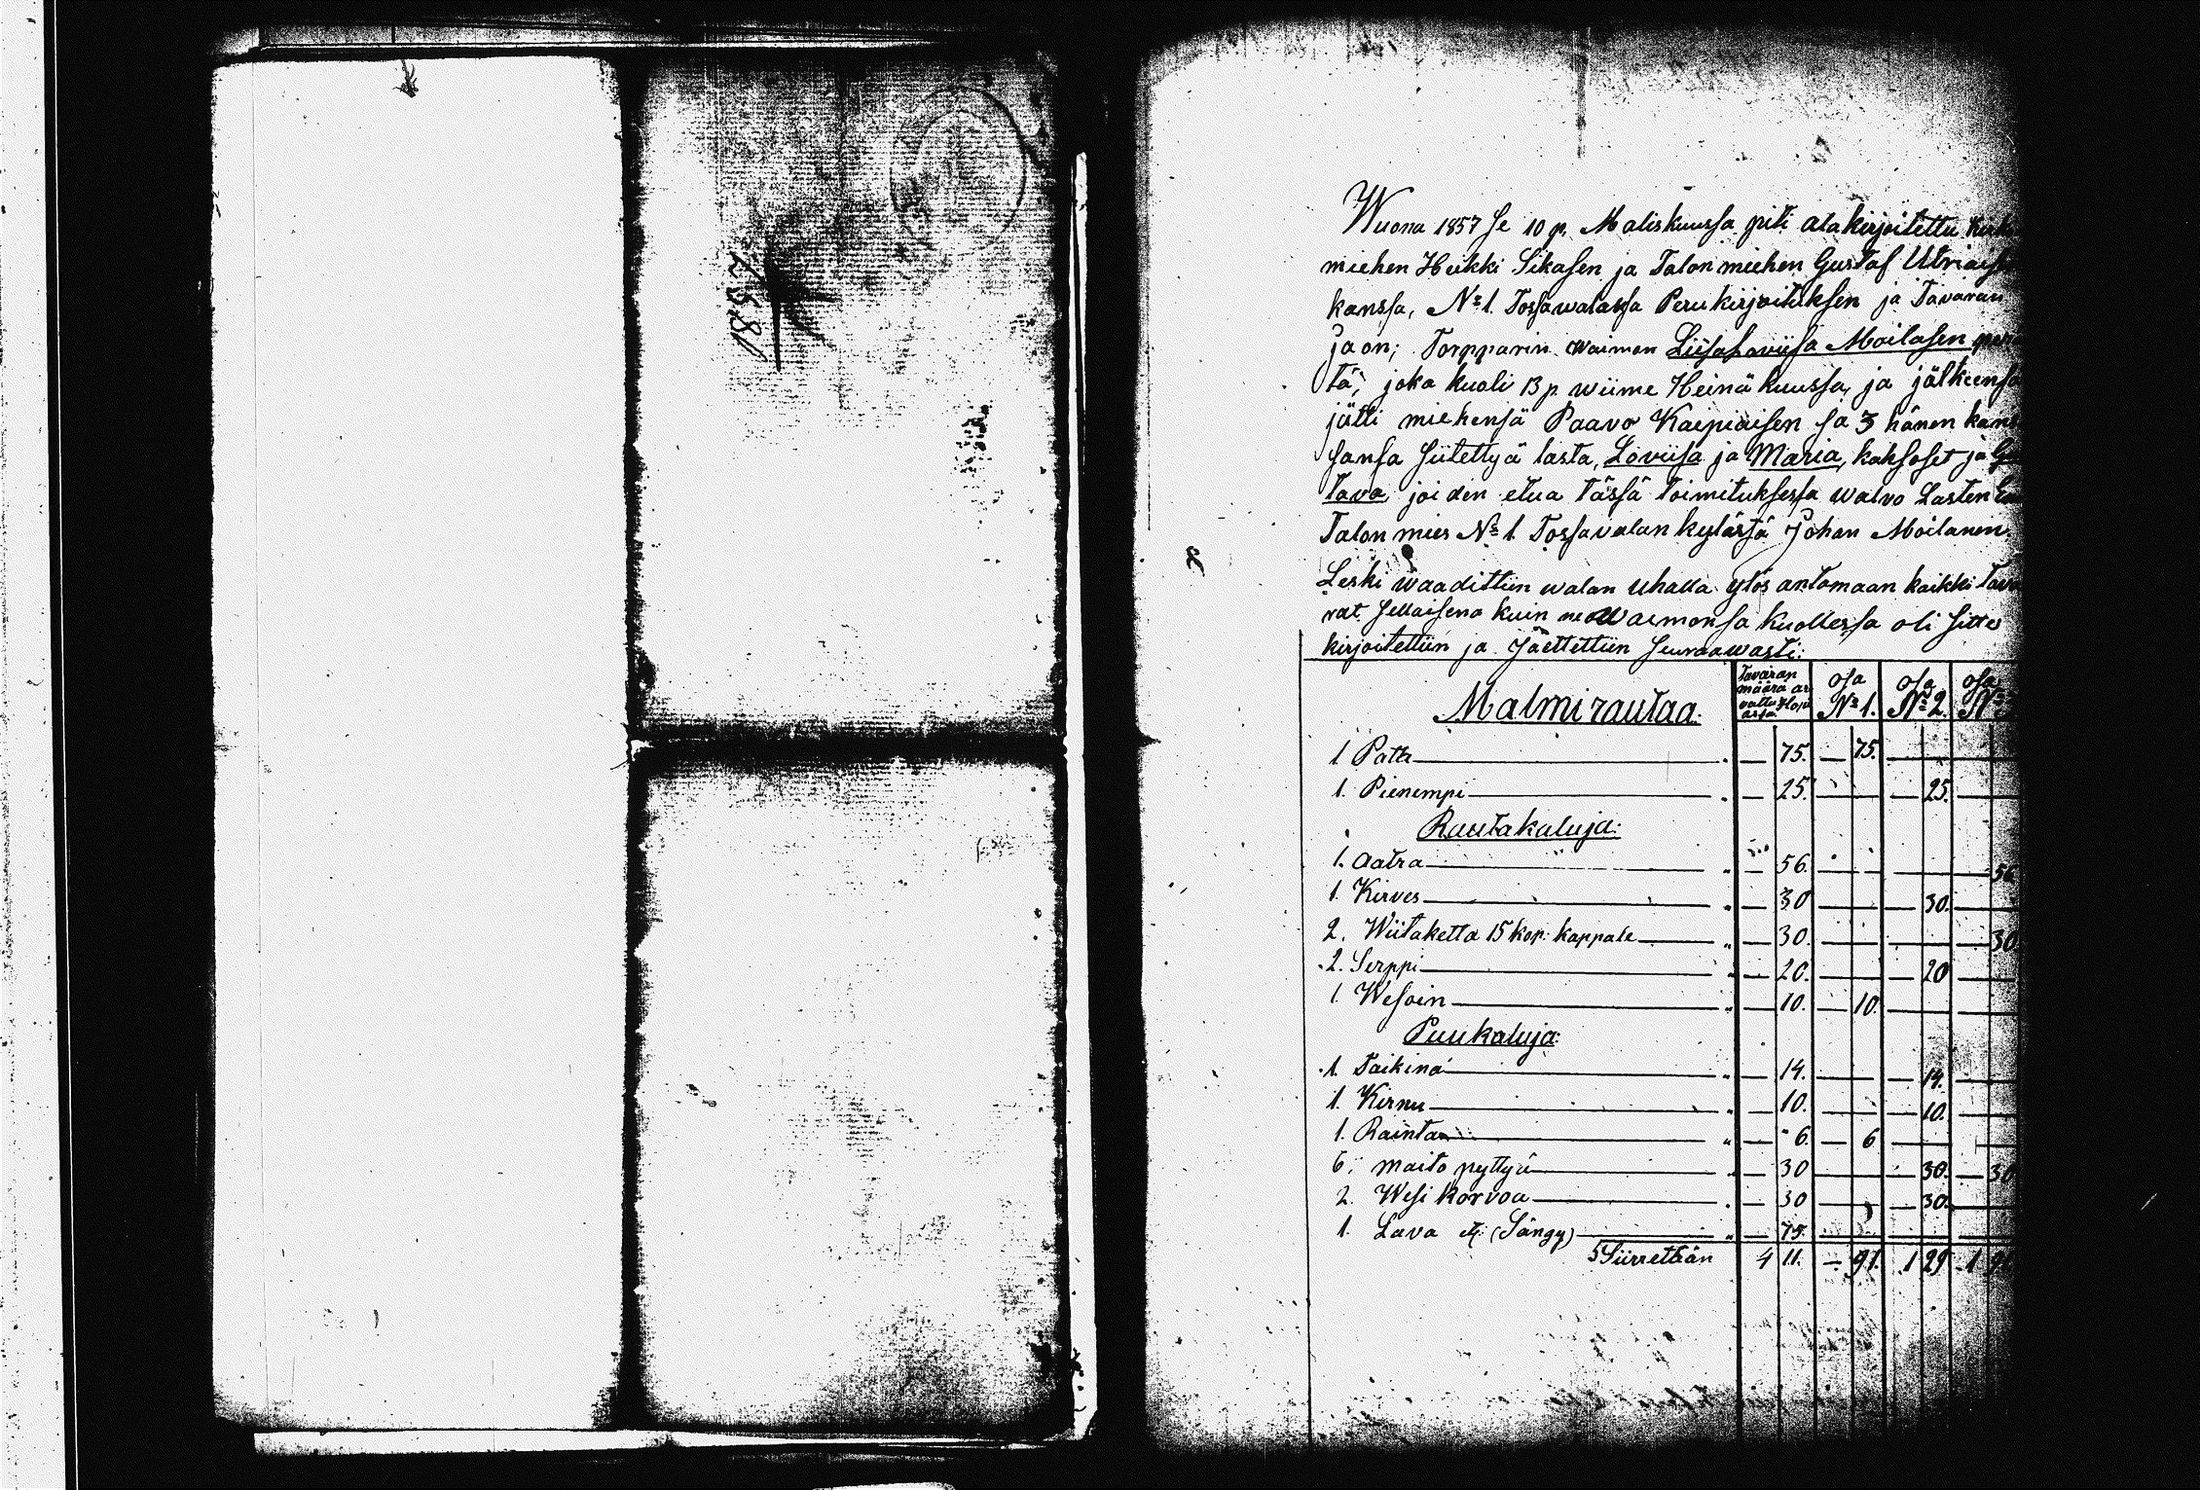 1857
8
Wuona 1857 se 10 p. Maliskuussa piti alakirjoitettu
miehen Heikki Sikasen ja Talonmiehen Gustaf
kanssa, No 1. Tossawalassa Perukirjoituksen ja Tavaran
jaon; Torpparin waimon Liisa Loviisa Moilasen
tä; joka kuoli 13 p. wiime Heinäkuussa, ja jälkeensä
jätti miehensä Paavo Karpiaisen ja 3 hänen kans
sansa siitettyä lasta, Loviisa ja Maria, kaksoset ja
tava joiden etua tässä toimituksessa walvo Lasten
Talonmies No 1 Tossavalan kylässä Johan Moilanen.
Leski waadittiin walan uhalla ylös antamaan kaikki tava
rat sellaisena kuin ne waimonsa kuollessa oli sitte
kirjoitettiin ja jaettettiin seuraawasti:
Malmirautaa. Tavaran määrä ar vattu Hopi assa Osa No 1. Osa No 2. Osa No
1 Pata — 75. — 75.
1. Pienempi — 25. — 25.
Rautakaluja:
1. Aatra — 56. 56
1. Kirves — 30 — 30.
2. Wiitaketta 15 kop: kappale — 30. — 30
2. Serppi — 20. — 20
1. Wesoin — 10. — 10.
Puukaluja:
1. Taikina — 14. — 14.
1. Kirnu — 10. — 10.
1. Rainta — 6. — 6
6. maito pyttyä — 30 — 30. — 30
2. Wesi korvoa — 30 — 30.
1. Lava (Sängy) — 75.
Siirretään 4 11. — 91. 1 29 1 91